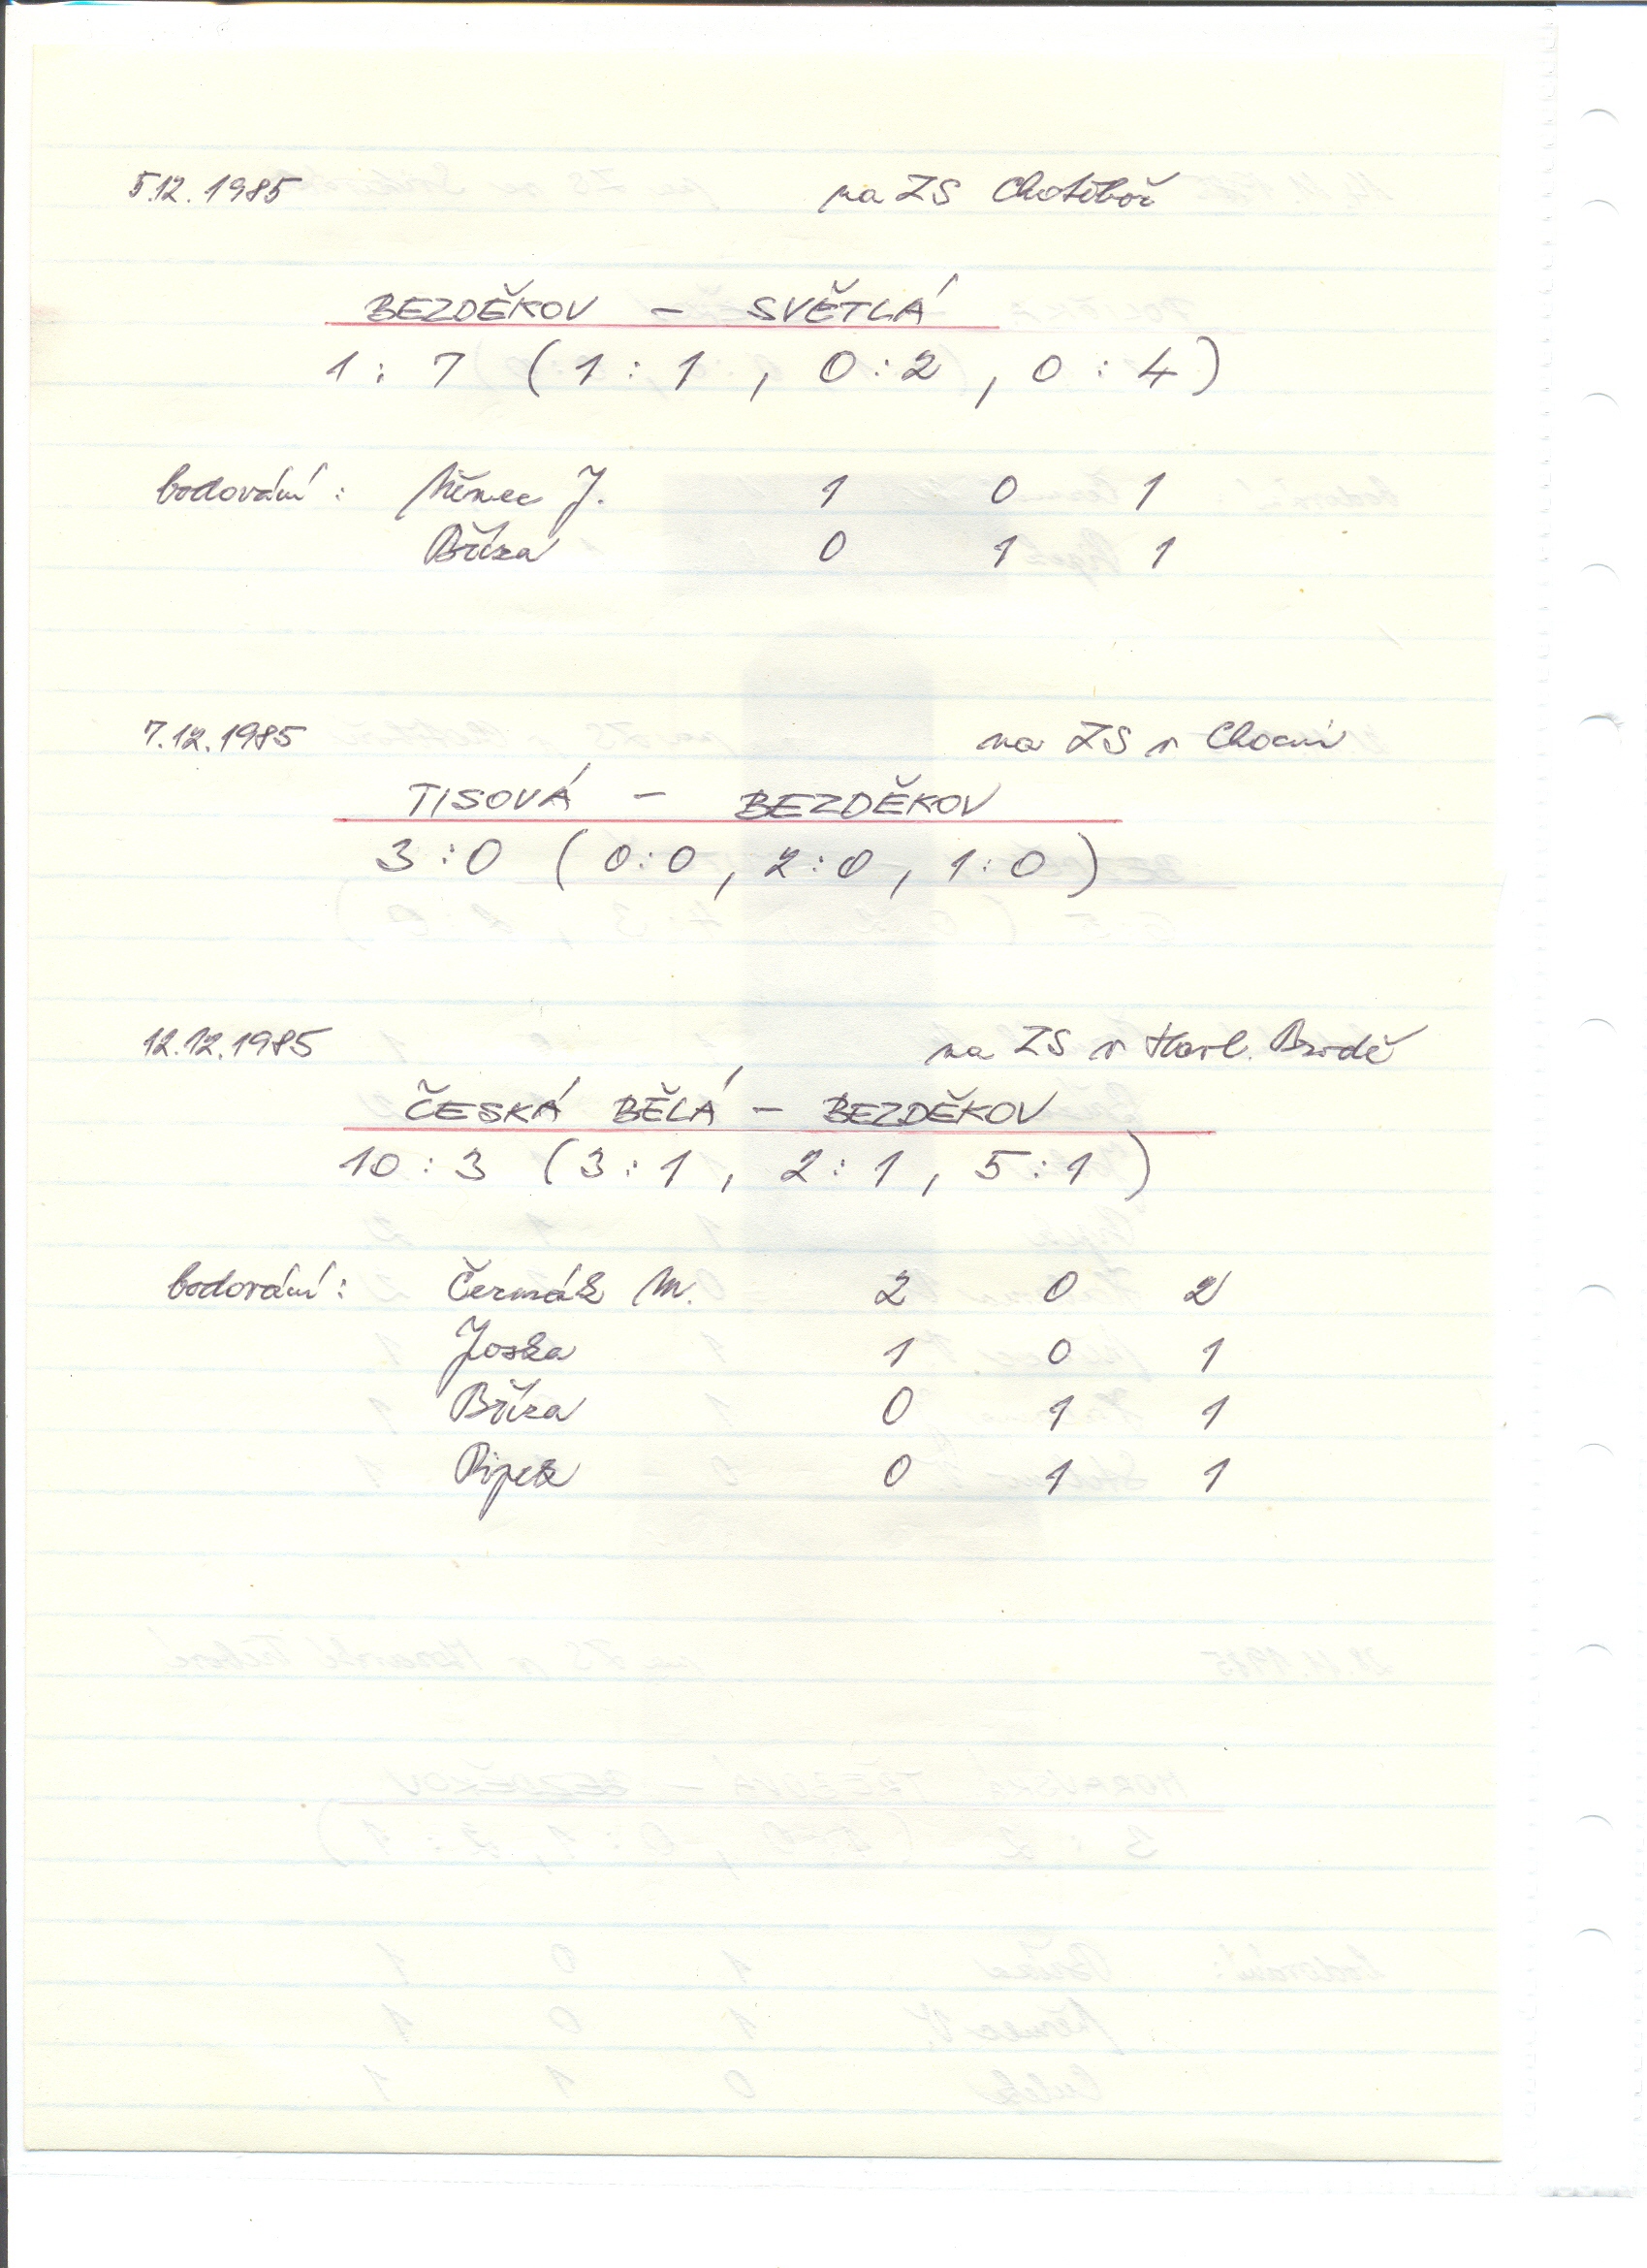 5.12.1985 na ZS Chotěboř
BEZDĚKOV – SVĚTLÁ
1 : 7 ( 1 : 1 , 0 : 2 , 0 : 4 )
bodování : Němec J. 1 0 1
Bříza 0 1 1
7.12.1985 na ZS v Chocni
TISOVÁ – BEZDĚKOV
3 : 0 ( 0 : 0 , 2 : 0 , 1 : 0 )
12.12.1985 na ZS v Havl. Brodě
ČESKÁ BĚLÁ – BEZDĚKOV
10 : 3 ( 3 : 1 , 2 : 1 , 5 : 1 )
bodování : Čermák M. 2 0 2
Joska 1 0 1
Bříza 0 1 1
Pipek 0 1 1